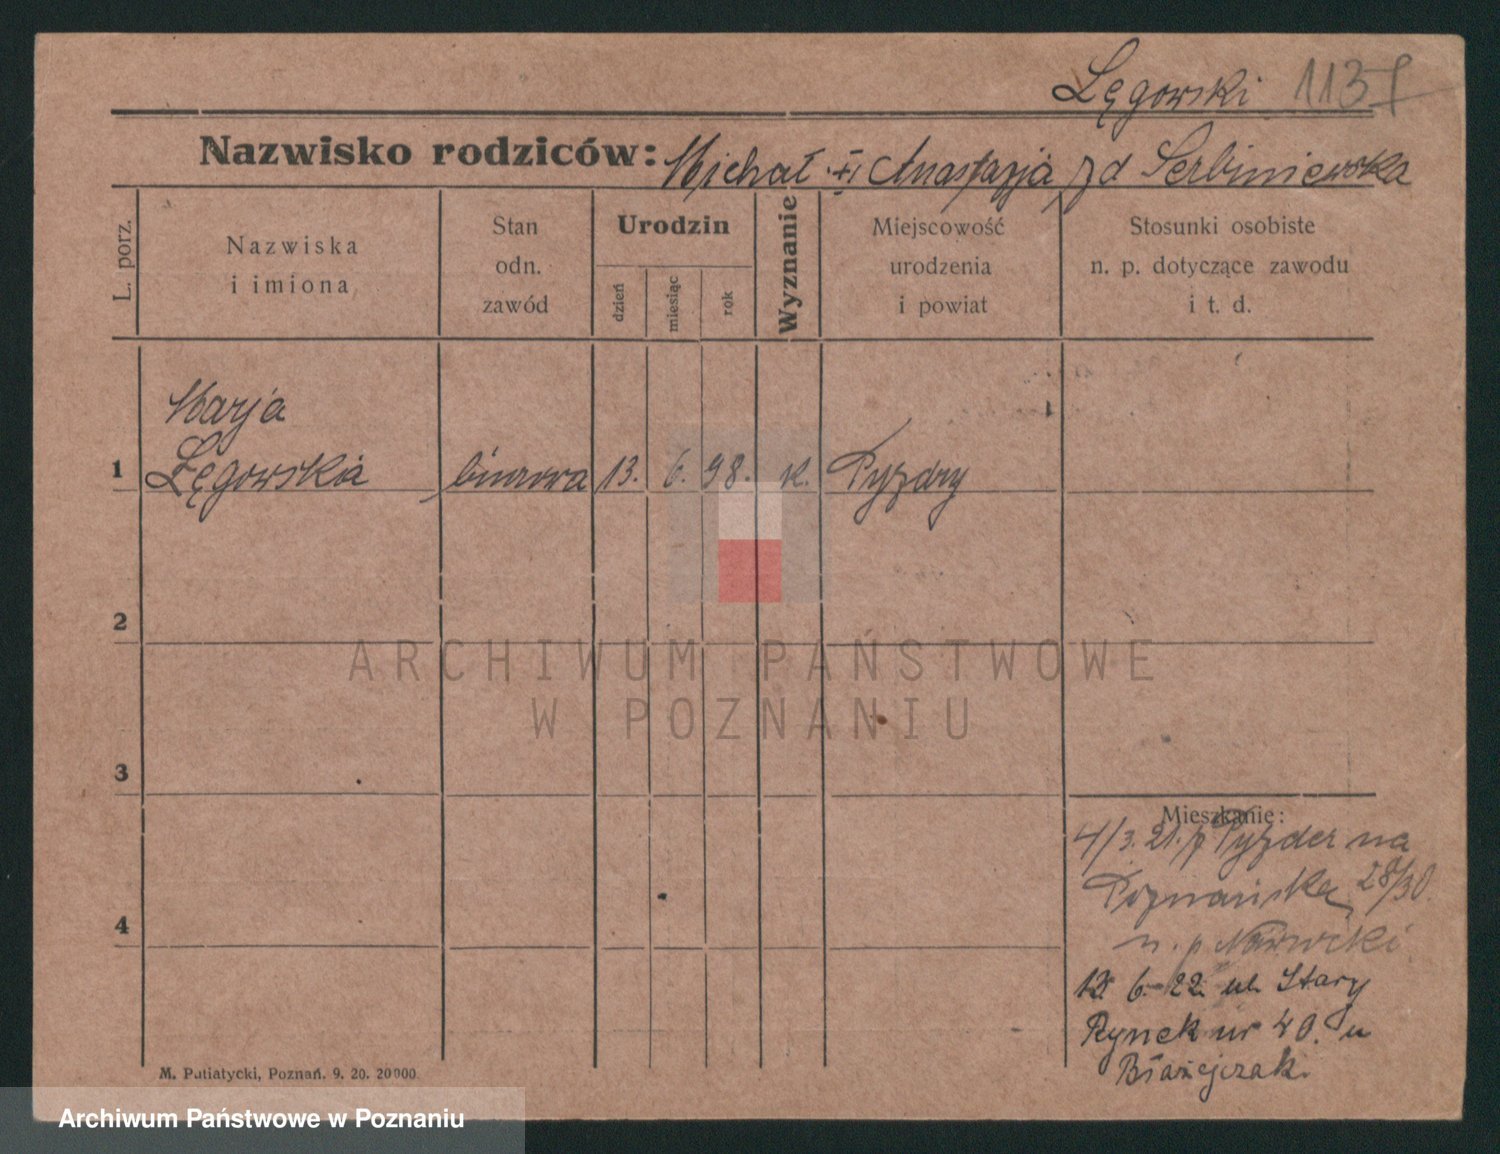 Łęgowski 113
Nazwisko rodziców: Michał i Anastazja z d Serbiniewska
L. porz.
Nazwiska
i imiona
Stan
odn.
zawód
Urodzin
dzień
miesiąc
rok
Wyznanie
Miejscowość
urodzenia
i powiat
Stosunki osobiste
n. p. dotyczące zawodu
i t. d.
Marja
1 Łęgowska biurowa 13. 6. 98. k. Pyzdry
2
ARCHIWUM PAŃSTWOWE
W POZNANIU
3
Mieszkanie:
4/3. 21. z Pyzder na
Poznańska 28/30.
4
n. p.
12. 6. 22. ul. Stary
Rynek nr 40. u
Błażejczak.
M. Putiatycki, Poznań. 9. 20. 20000.
Archiwum Państwowe w Poznaniu